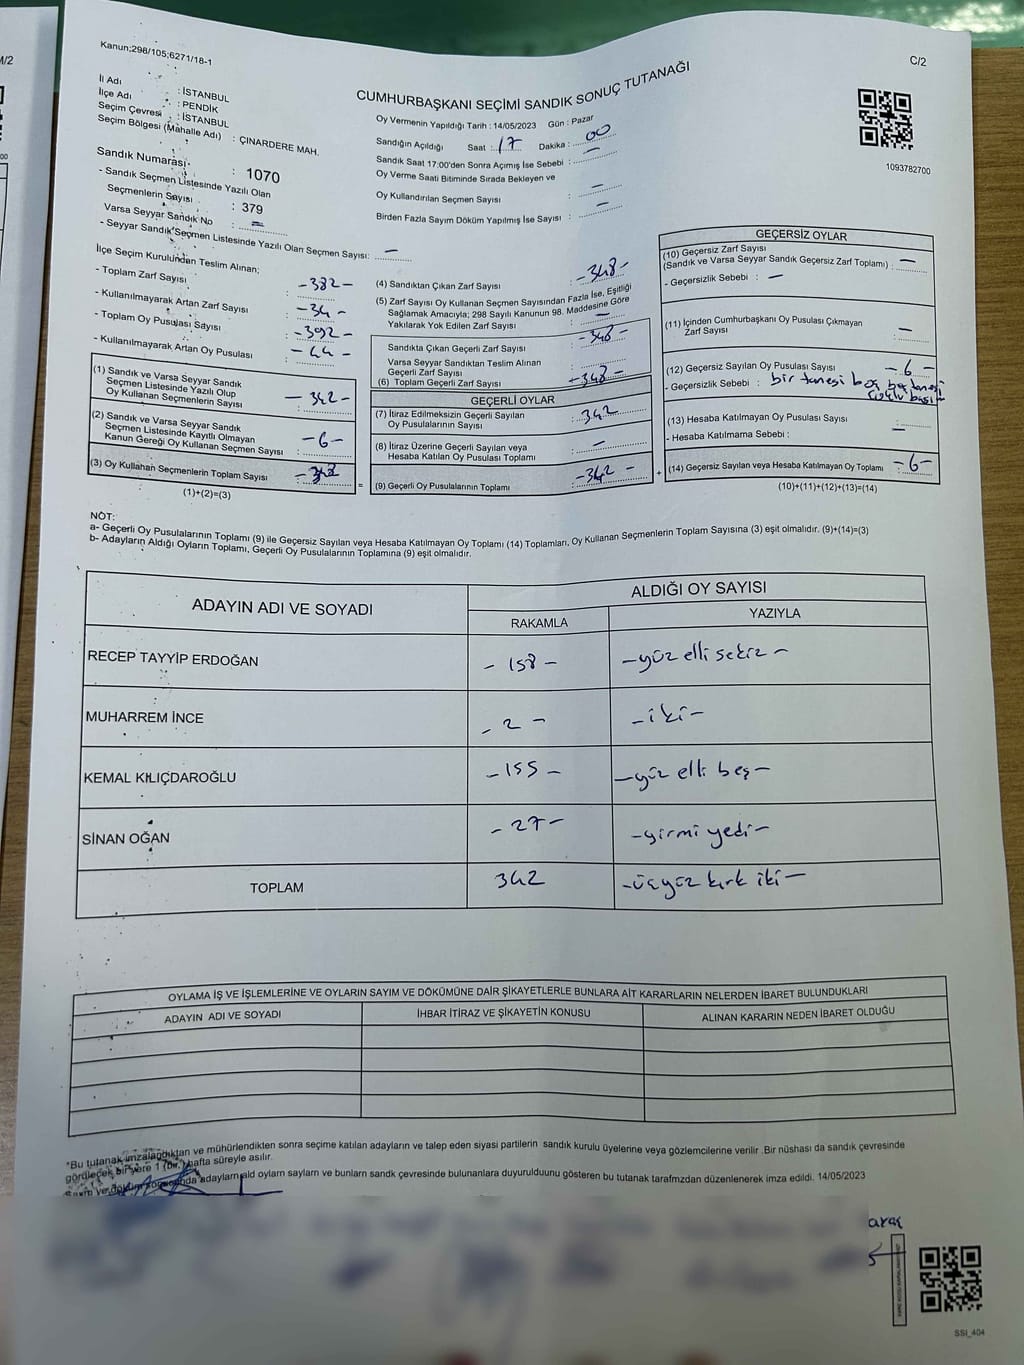 Kanun;298/105;6271/18-1
C/2
M/2
İl Adı : İSTANBUL
İlçe Adı : PENDİK
Seçim Çevresi : İSTANBUL
Seçim Bölgesi (Mahalle Adı) : ÇINARDERE MAH.
CUMHURBAŞKANI SEÇİMİ SANDIK SONUÇ TUTANAĞI
Oy Vermenin Yapıldığı Tarih : 14/05/2023 Gün : Pazar
Sandığın Açıldığı Saat : 17 Dakika : 00
Sandık Saat 17:00'den Sonra Açımış İse Sebebi : —
Oy Verme Saati Bitiminde Sırada Bekleyen ve
Oy Kullandırılan Seçmen Sayısı : —
Birden Fazla Sayım Döküm Yapılmış İse Sayısı : —
1093782700
Sandık Numarası : 1070
- Sandık Seçmen Listesinde Yazılı Olan
Seçmenlerin Sayısı : 379
Varsa Seyyar Sandık No : —
- Seyyar Sandık Seçmen Listesinde Yazılı Olan Seçmen Sayısı: —
İlçe Seçim Kurulundan Teslim Alınan;
- Toplam Zarf Sayısı : -382-
- Kullanılmayarak Artan Zarf Sayısı : -34-
- Toplam Oy Pusulası Sayısı : -392-
- Kullanılmayarak Artan Oy Pusulası : -44-
(1) Sandık ve Varsa Seyyar Sandık
Seçmen Listesinde Yazılı Olup
Oy Kullanan Seçmenlerin Sayısı : -342-
(2) Sandık ve Varsa Seyyar Sandık
Seçmen Listesinde Kayıtlı Olmayan
Kanun Gereği Oy Kullanan Seçmen Sayısı : -6-
(3) Oy Kullanan Seçmenlerin Toplam Sayısı :
(1)+(2)=(3)
(4) Sandıktan Çıkan Zarf Sayısı : -348-
(5) Zarf Sayısı Oy Kullanan Seçmen Sayısından Fazla İse, Eşitliği
Sağlamak Amacıyla; 298 Sayılı Kanunun 98. Maddesine Göre
Yakılarak Yok Edilen Zarf Sayısı : —
Sandıkta Çıkan Geçerli Zarf Sayısı : -348-
Varsa Seyyar Sandıktan Teslim Alınan
Geçerli Zarf Sayısı :
(6) Toplam Geçerli Zarf Sayısı : -348-
GEÇERLİ OYLAR
(7) İtiraz Edilmeksizin Geçerli Sayılan
Oy Pusulalarının Sayısı : 342
(8) İtiraz Üzerine Geçerli Sayılan veya
Hesaba Katılan Oy Pusulası Toplamı : —
= (9) Geçerli Oy Pusulalarının Toplamı : -342-
GEÇERSİZ OYLAR
(10) Geçersiz Zarf Sayısı
(Sandık ve Varsa Seyyar Sandık Geçersiz Zarf Toplamı) : —
- Geçersizlik Sebebi : —
(11) İçinden Cumhurbaşkanı Oy Pusulası Çıkmayan
Zarf Sayısı : —
(12) Geçersiz Sayılan Oy Pusulası Sayısı : -6-
- Geçersizlik Sebebi : bir tanesi boş beş tanesi
(13) Hesaba Katılmayan Oy Pusulası Sayısı : —
- Hesaba Katılmama Sebebi :
+ (14) Geçersiz Sayılan veya Hesaba Katılmayan Oy Toplamı : -6-
(10)+(11)+(12)+(13)=(14)
NOT:
a- Geçerli Oy Pusulalarının Toplamı (9) ile Geçersiz Sayılan veya Hesaba Katılmayan Oy Toplamı (14) Toplamları, Oy Kullanan Seçmenlerin Toplam Sayısına (3) eşit olmalıdır. (9)+(14)=(3)
b- Adayların Aldığı Oyların Toplamı, Geçerli Oy Pusulalarının Toplamına (9) eşit olmalıdır.
ADAYIN ADI VE SOYADI
ALDIĞI OY SAYISI
RAKAMLA YAZIYLA
RECEP TAYYİP ERDOĞAN -158- -yüz elli sekiz-
MUHARREM İNCE -2- -iki-
KEMAL KILIÇDAROĞLU -155- -yüz elli beş-
SİNAN OĞAN -27- -yirmi yedi-
TOPLAM 342 -üçyüz kırk iki-
OYLAMA İŞ VE İŞLEMLERİNE VE OYLARIN SAYIM VE DÖKÜMÜNE DAİR ŞİKAYETLERLE BUNLARA AİT KARARLARIN NELERDEN İBARET BULUNDUKLARI
ADAYIN ADI VE SOYADI İHBAR İTİRAZ VE ŞİKAYETİN KONUSU ALINAN KARARIN NEDEN İBARET OLDUĞU
*Bu tutanak imzalandıktan ve mühürlendikten sonra seçime katılan adayların ve talep eden siyasi partilerin sandık kurulu üyelerine veya gözlemcilerine verilir .Bir nüshası da sandık çevresinde
görülecek bir yere 1 (bir) hafta süreyle asılır.
Sayım ve döküm sonucunda adaylarn ald oylarn saylarn ve bunlarn sandk çevresinde bulunanlara duyurulduunu gösteren bu tutanak tarafmzdan düzenlenerek imza edildi. 14/05/2023
SSI_404